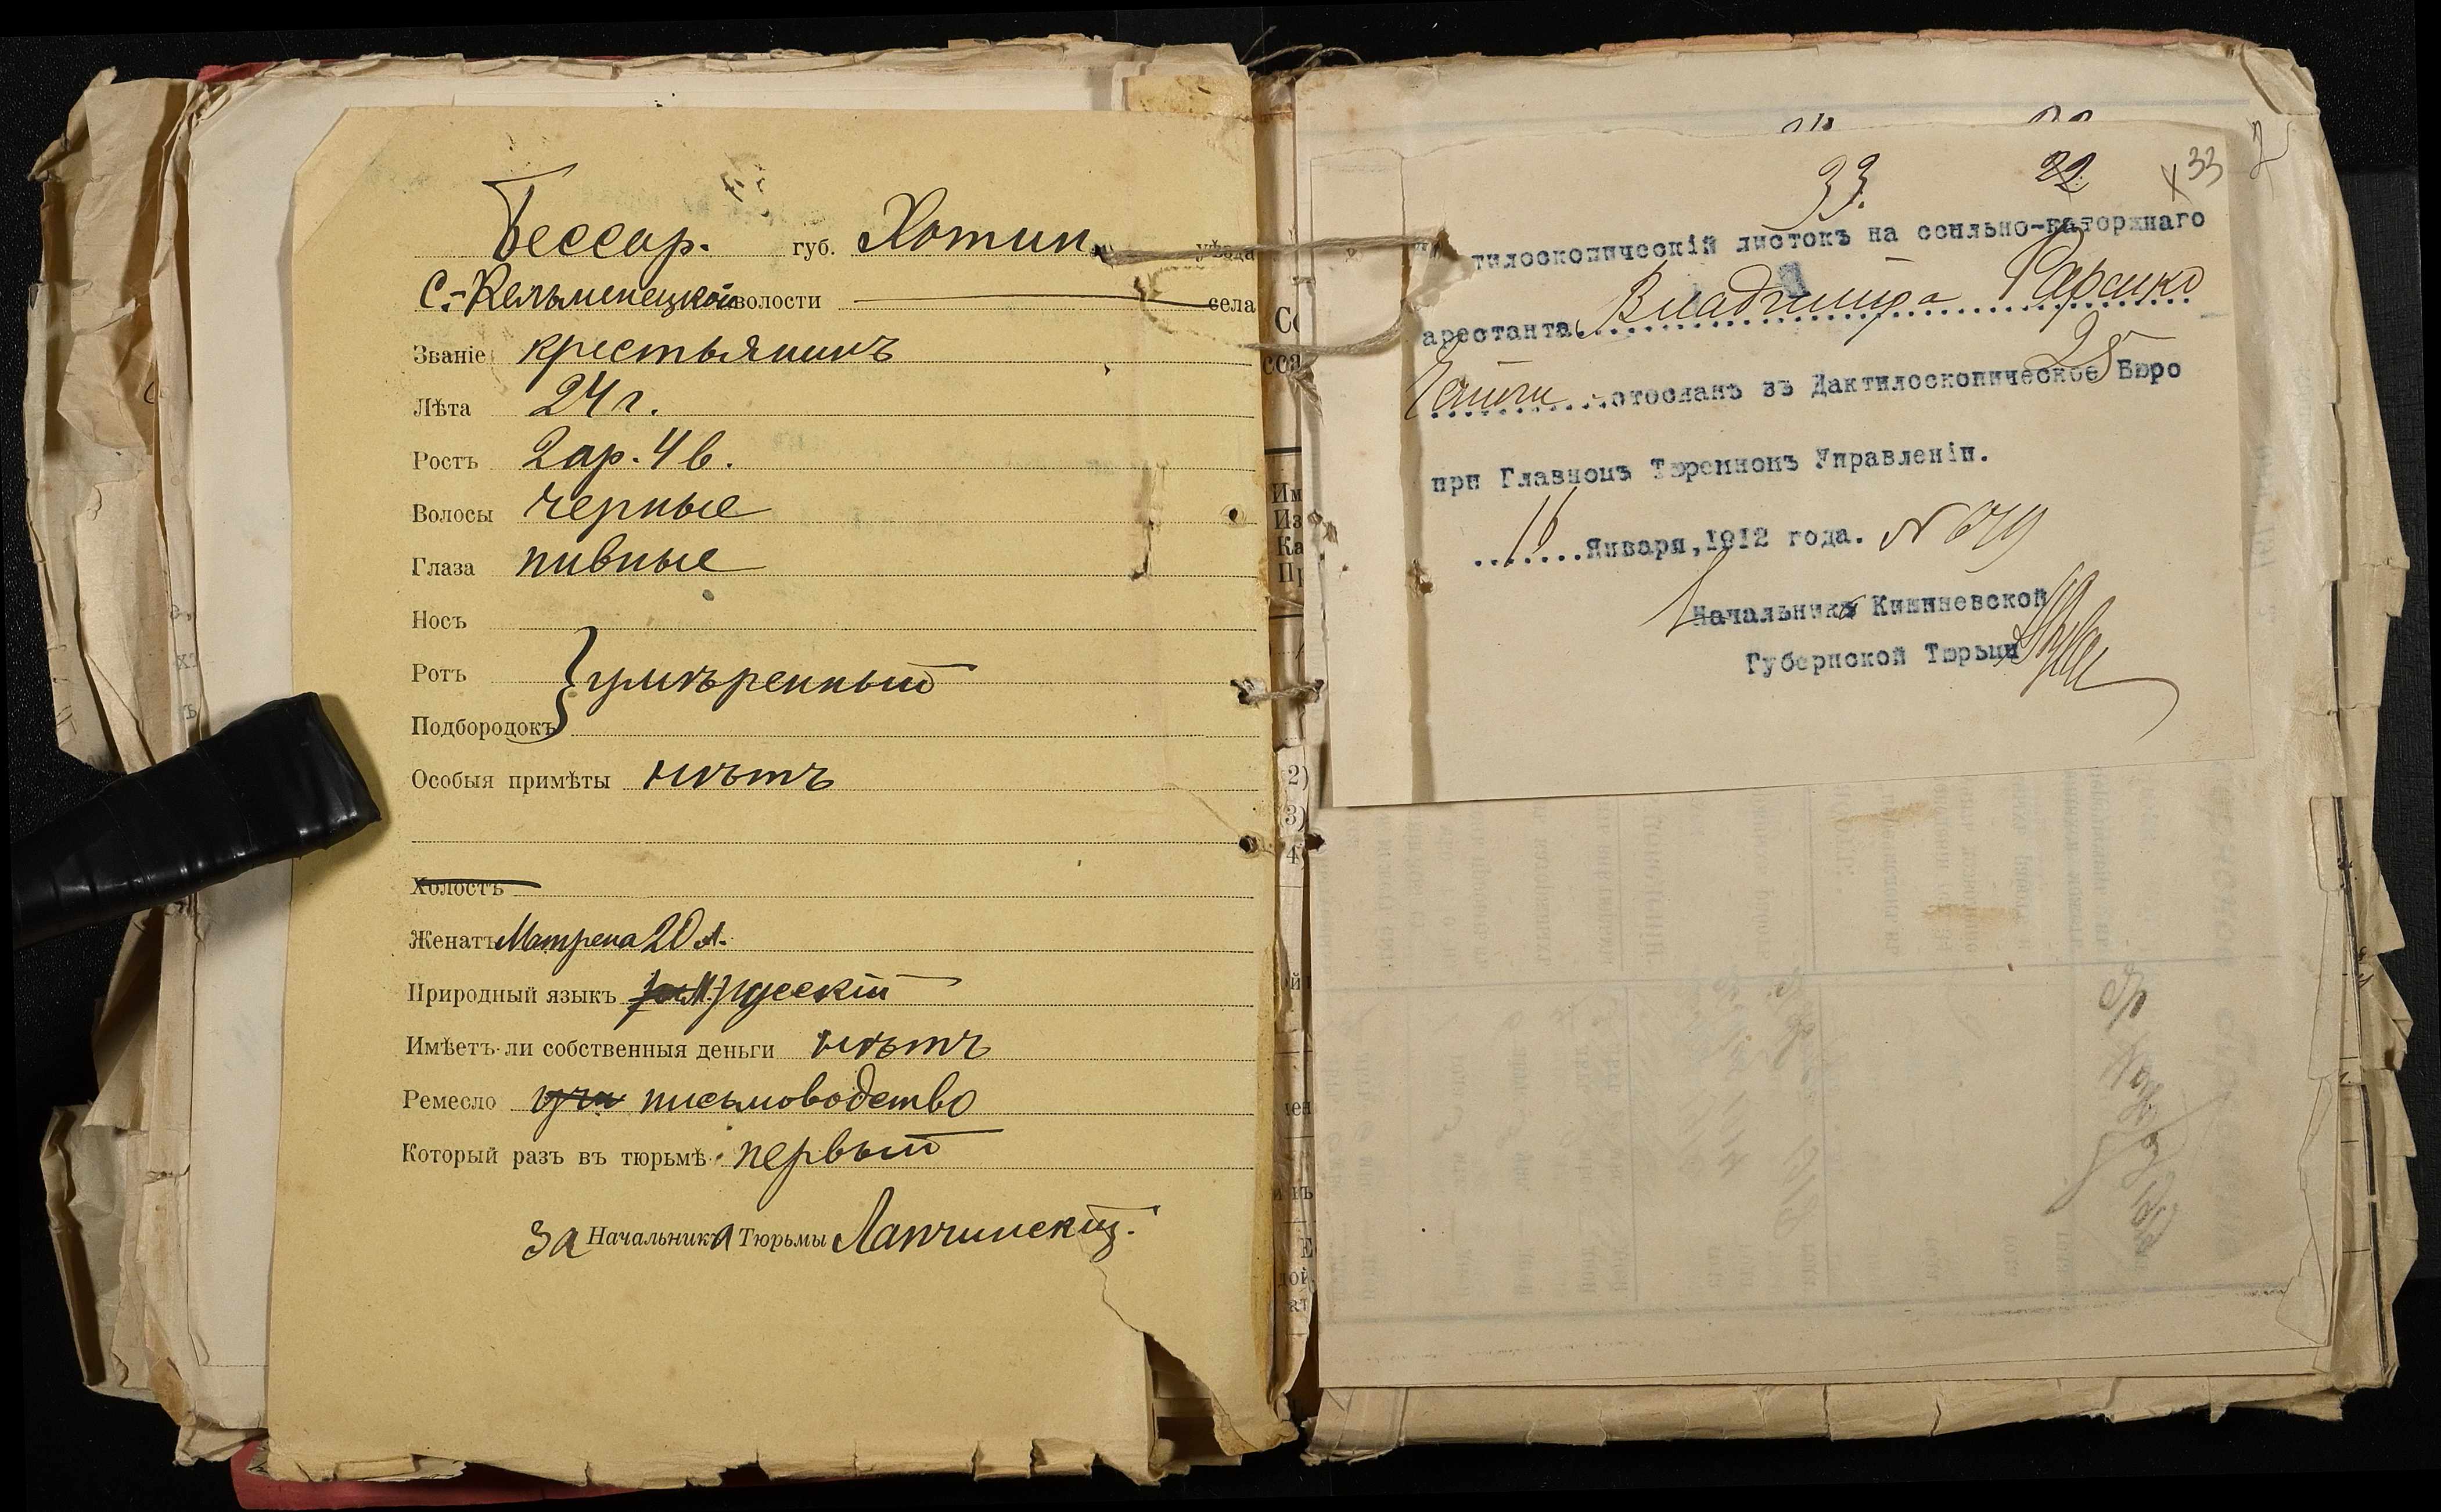 Бессар. губ. Хотин. уѣзда
С.-Кельменецкой волости села
Званіе крестьянинъ
Лѣта 24 г.
Ростъ 2 ар. 4 в.
Волосы черные
Глаза пивные
Носъ
Ротъ } умѣренный
Подбородокъ
Особыя примѣты нѣтъ
Холостъ
Женатъ Матрена 20 л.
Природный языкъ русскій
Имѣетъ-ли собственныя деньги нѣтъ
Ремесло письмоводство
Который разъ въ тюрьмѣ первый
За Начальника Тюрьмы Лапчинскій.
33. 22 x 33
тилоскопическій листокъ на ссыльно-каторжнаго
арестанта Владиміра
отосланъ въ Дактилоскопическое Бюро
при Главномъ Тюремномъ Управленіи.
16 Января, 1912 года. №
Начальникъ Кишиневской
Губернской Тюрьмы